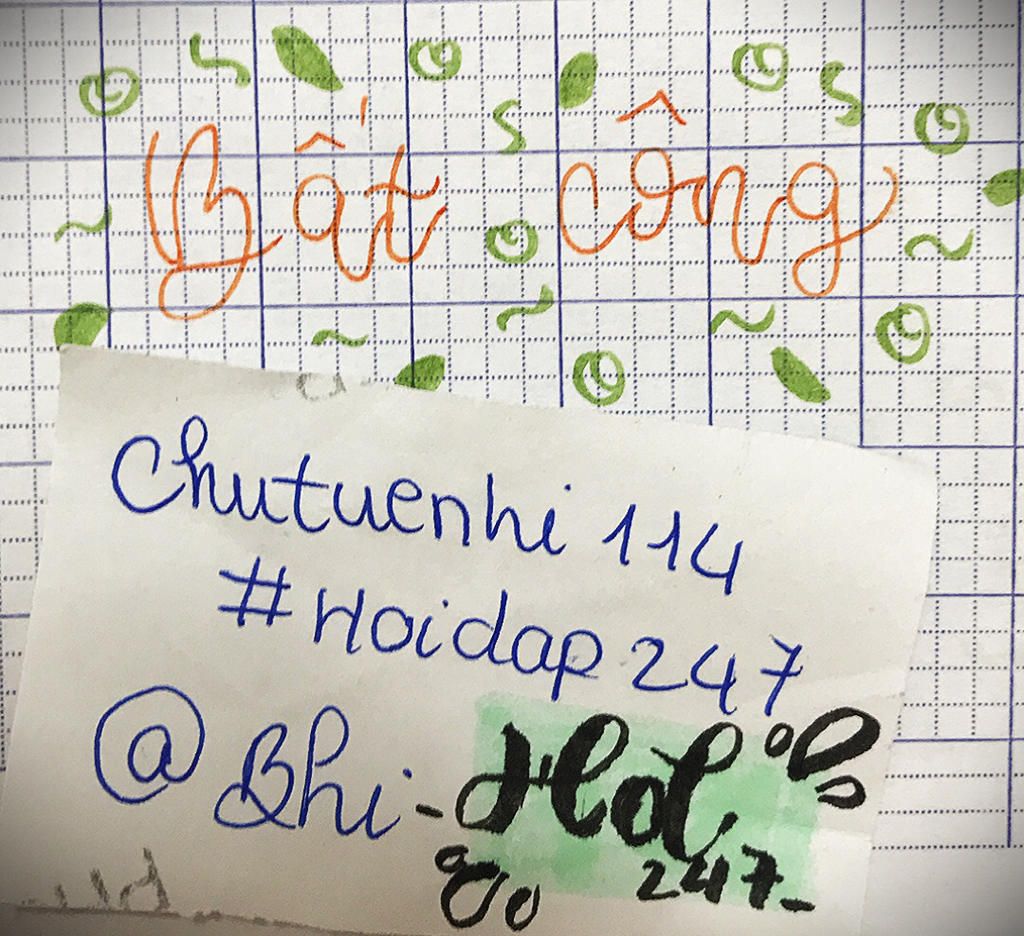 Bất công
Chutuenhi 114
#Hoidap 247
@Bhi-
247-